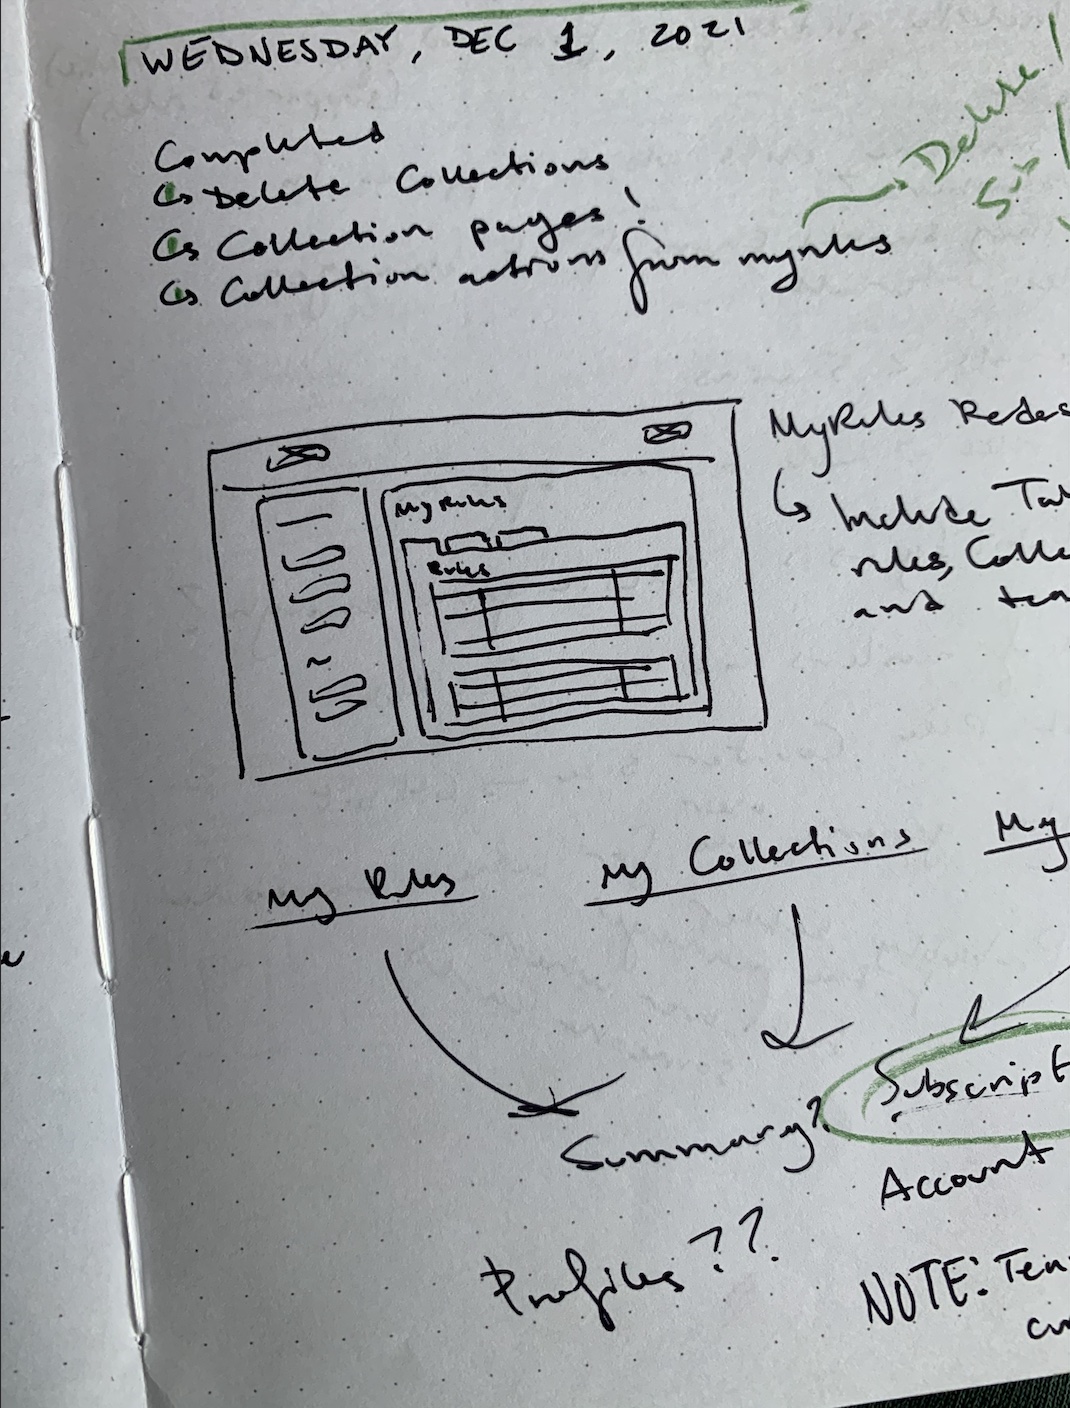 WEDNESDAY, DEC 1, 2021
Completed
↳ Delete Collections
↳ Collection pages!
↳ Collection actions from myrules
Delete
MyRules Redes
↳ Include Tab
rules, Colle
and tea
MyRules
Rules
My Rules
My Collections
My
Summary?
Subscript
Account
Profiles??
NOTE: Ten